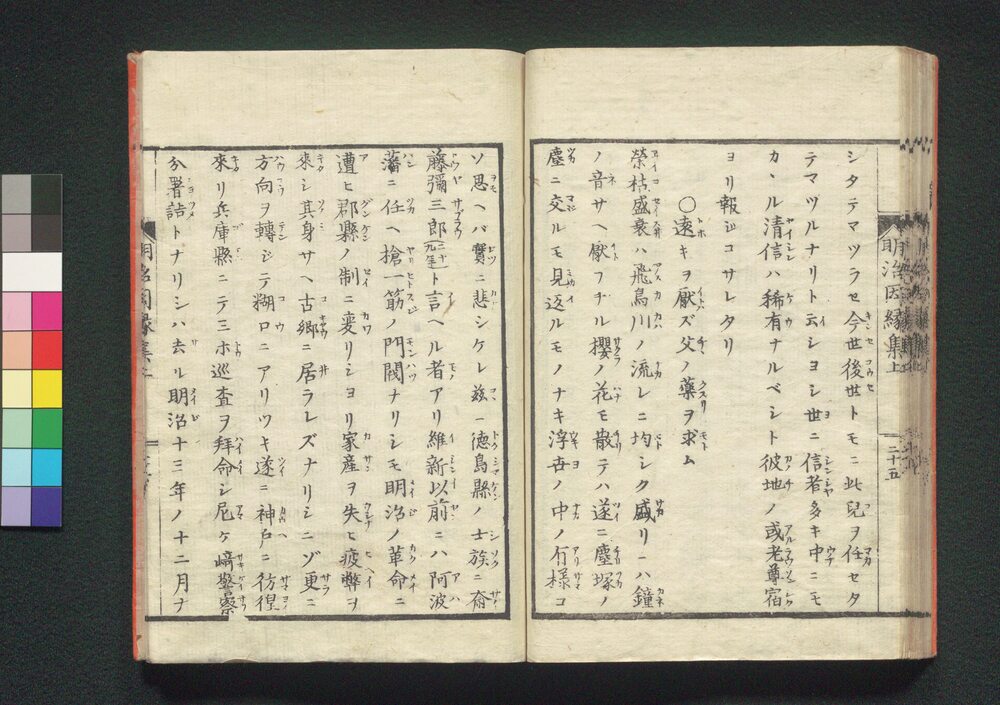 明治因縁集上
二十五
シタテマツラセ今世後世トモニ此兒ヲ任セタ
テマツルナリト云シヨシ世ニ信者多キ中ニモ
カヽル清信ハ稀有ナルベシト彼地ノ或老尊宿
ヨリ報ジコサレタリ
〇遠キヲ厭ズ父ノ藥ヲ求ム
榮枯盛衰ハ飛鳥川ノ流レニ均シク盛リハ鐘
ノ音サヘ厭フナル櫻ノ花モ散テハ遂ニ塵塚ノ
塵ニ交ルモ見返ルモノナキ浮世ノ中ノ有様コ
ソ思ヘバ實ニ悲シケレ茲ニ德島縣ノ士族ニ齋
藤彌三郎二十九年ト言ヘル者アリ維新以前ニハ阿波
藩ニ任ヘ槍一筋ノ門閥ナリシモ明治ノ革命ニ
遭ヒ郡縣ノ制ニ変リシヨリ家産ヲ失ヒ疲弊ヲ
來シ其身サヘ古郷ニ居ラレズナリシニゾ更ニ
方向ヲ轉ジテ糊口ニアリツキ遂ニ神戸ニ彷徨
來リ兵庫縣ニテ三ホ巡査ヲ拜命シ尼ケ﨑警察
分署詰トナリシハ去ル明治十三年ノ十二月ナ